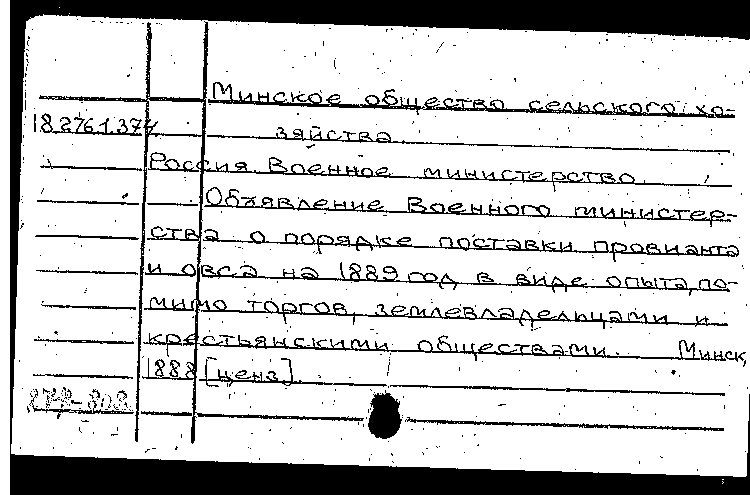 Минское общество сельского хо-
18.276.1.374 зяйства.
Россия. Военное министерство.
Объявление Военного министер-
ства о порядке поставки провианта
и овса на 1889 год в виде опыта, по-
мимо торгов, землевладельцами и
крестьянскими обществами. Минск,
1888 [ценз].